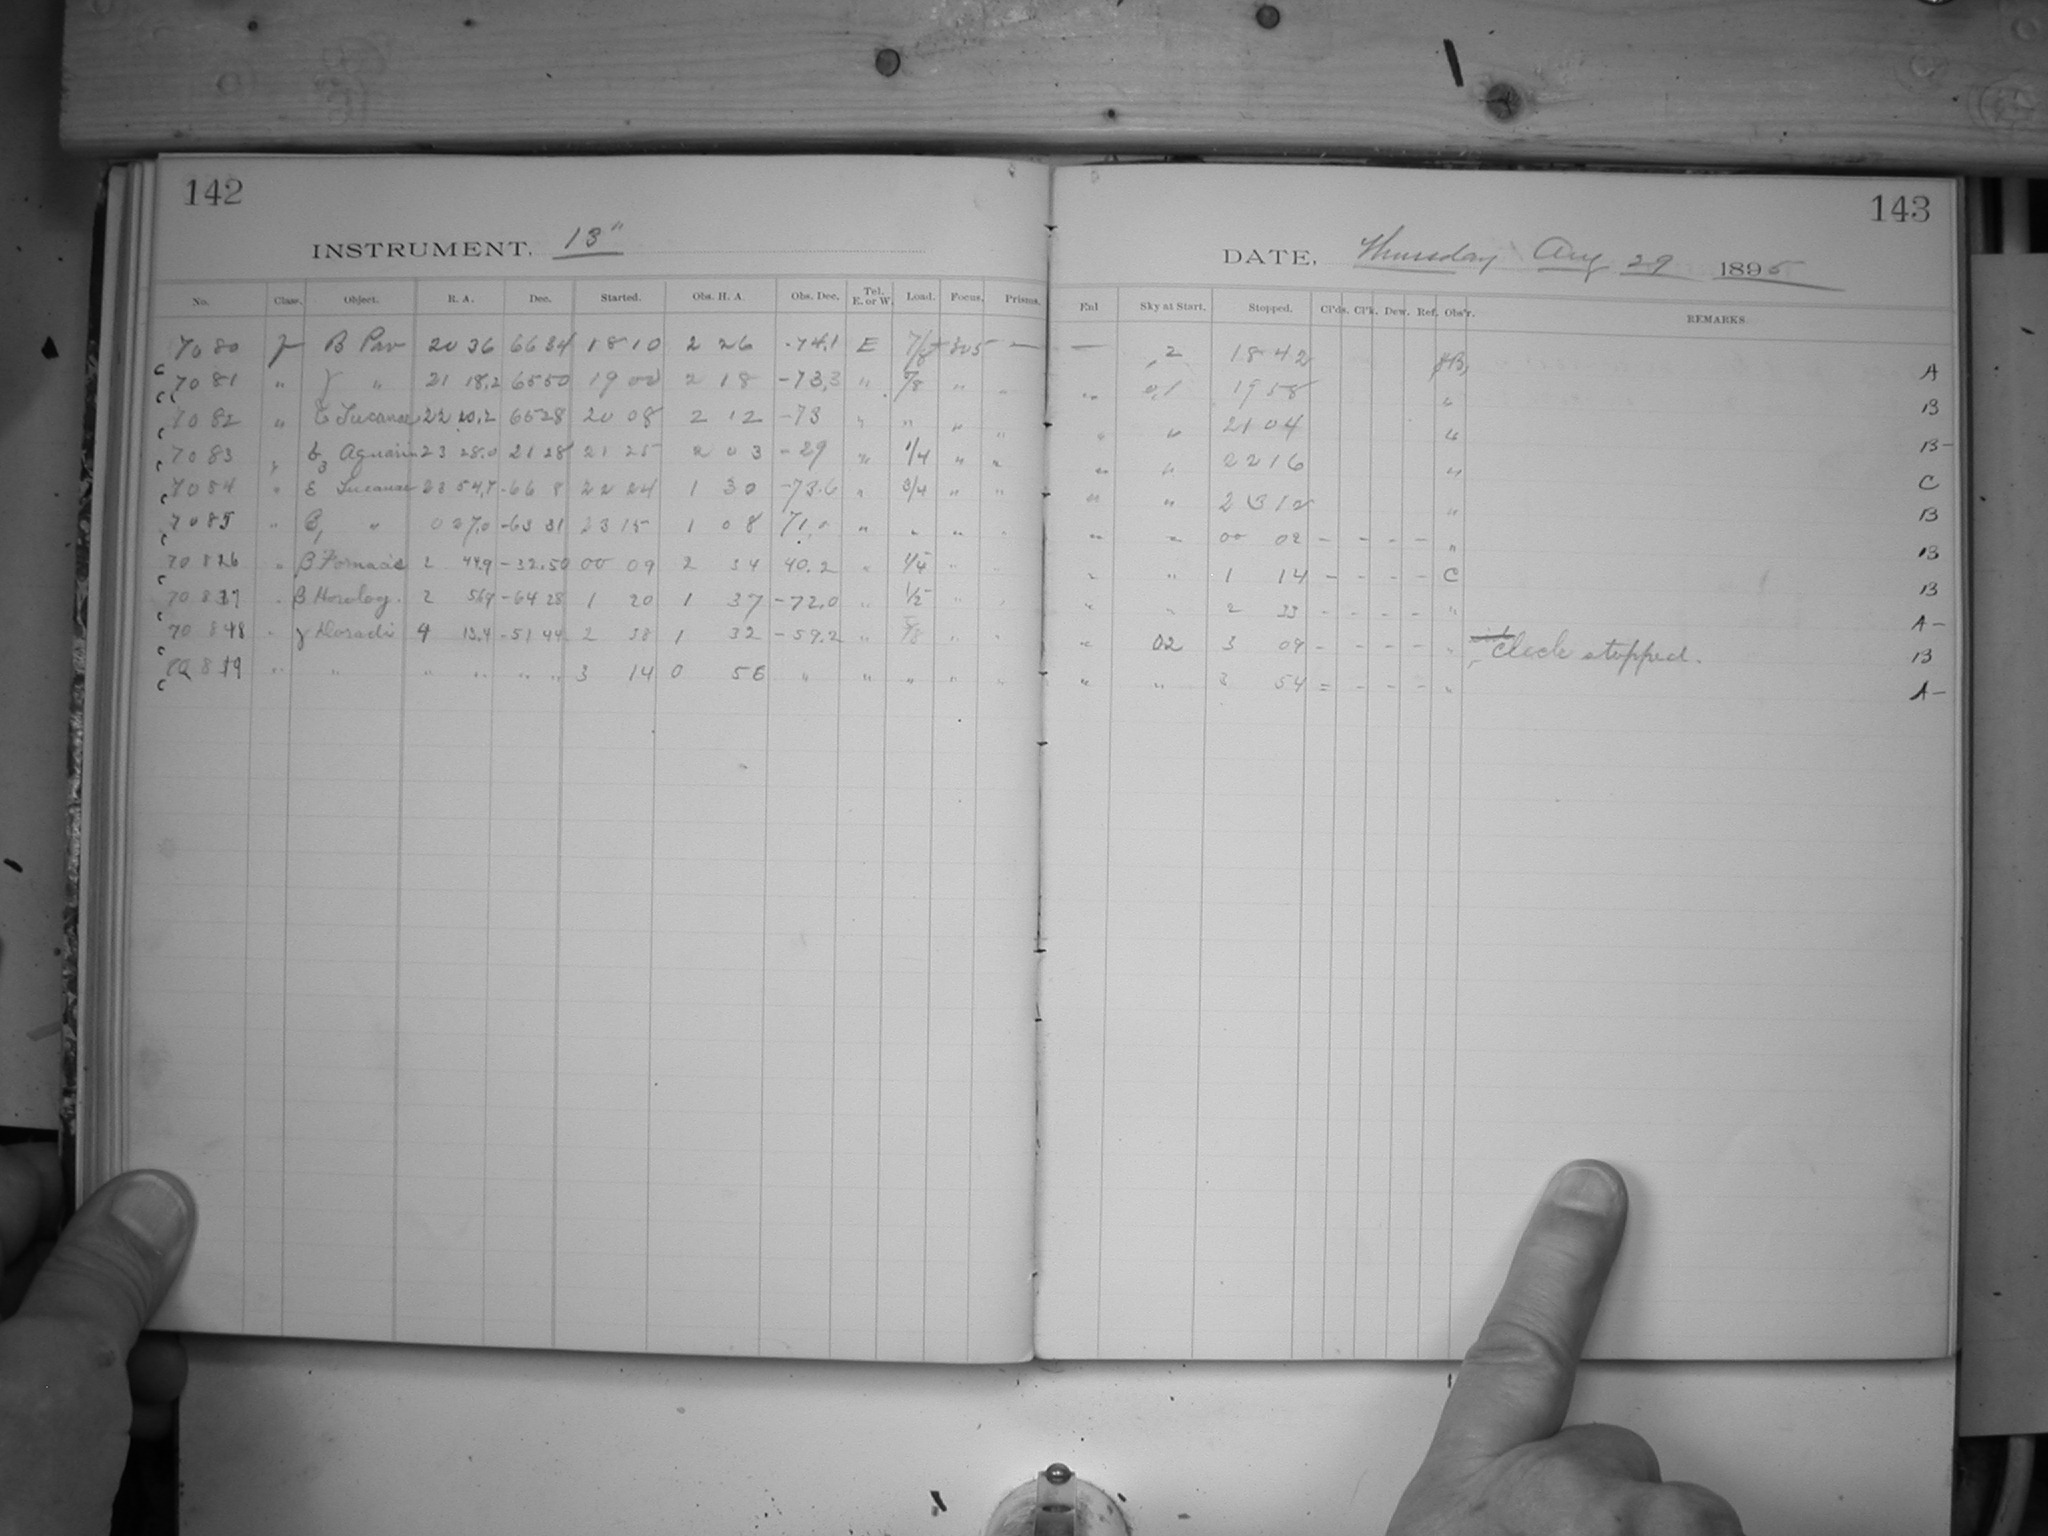 142
INSTRUMENT. 13"
No. Class. Object. R. A. Dec. Started. Obs. H. A. Obs. Dec. Tel. E. or W. Load. Focus. Prisms.
7080 β Pav 20 36 6634 18 10 2 26 -74.1 E 7/8 305 —
c 7081 " γ " 21 18.2 6550 19 00 2 18 -73.3 " 7/8 " "
c 7082 " Tucanae 22 20.2 6528 20 08 2 12 -73 " " " "
c 7083 " b3 Aquarii 23 28.0 21 28 21 25 2 03 -29 " 1/4 " "
c 7084 " ε Tucanae 23 54.7 -66 8 22 24 1 30 -73.6 " 3/4 " "
c 7085 " β1 " 0 27.0 -63 31 23 15 1 08 71.0 " " " "
c 708 " β Fornacis 2 44.9 -32.50 00 09 2 34 40.2 " 1/4 " "
c 708 " β Horolog. 2 56.9 -64 28 1 20 1 37 -72.0 " 1/2 " "
c 708 " γ Doradi 4 13.4 -51 44 2 38 1 32 -59.2 " 5/8 " "
c " " " " " " 3 14 0 56 " " " " "
c
143
DATE, Thursday Aug 29 1895
Enl Sky at Start. Stopped. Cl'ds. Cl'k. Dew. Ref. Obs'r. REMARKS.
— 2 18 42 A
" 0,1 19 58 " B
" " 21 04 " B-
" " 22 16 " C
" " 23 12 " B
" " 00 02 - - - - " B
" " 1 14 - - - - C B
" " 2 33 - - - - " A-
" 02 3 09 - - - - " Clock stopped. B
" " 3 54 = - - - " A-